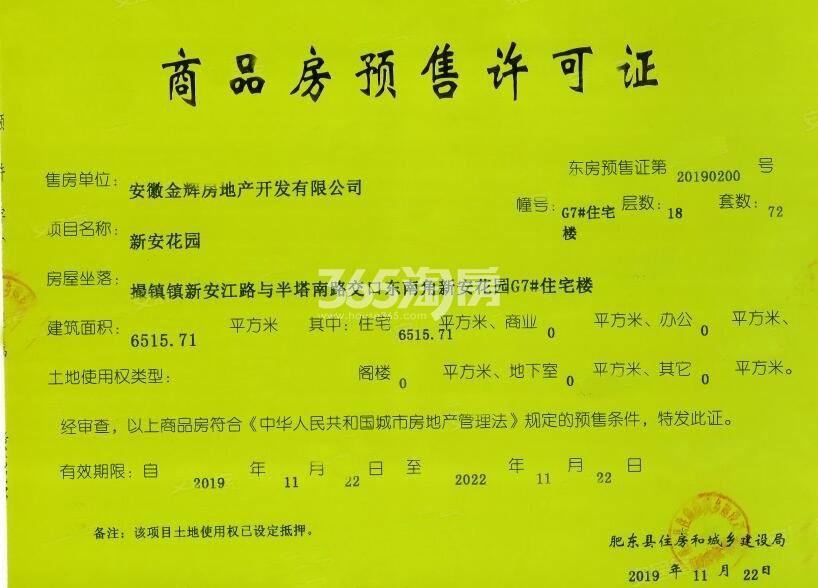 商品房预售许可证
东房预售证第 20190200 号
售房单位: 安徽金辉房地产开发有限公司
幢号: G7#住宅楼 层数: 18 套数: 72
项目名称: 新安花园
房屋坐落: 撮镇镇新安江路与半塔南路交口东南角新安花园G7#住宅楼
365淘房
www.house365.com
建筑面积: 6515.71 平方米 其中: 住宅 6515.71 平方米、商业 0 平方米、办公 0 平方米、
土地使用权类型: 阁楼 0 平方米、地下室 0 平方米、其它 0 平方米。
经审查，以上商品房符合《中华人民共和国城市房地产管理法》规定的预售条件，特发此证。
有效期限: 自 2019 年 11 月 22 日 至 2022 年 11 月 22 日
备注: 该项目土地使用权已设定抵押。
肥东县住房和城乡建设局
2019 年 11 月 22日